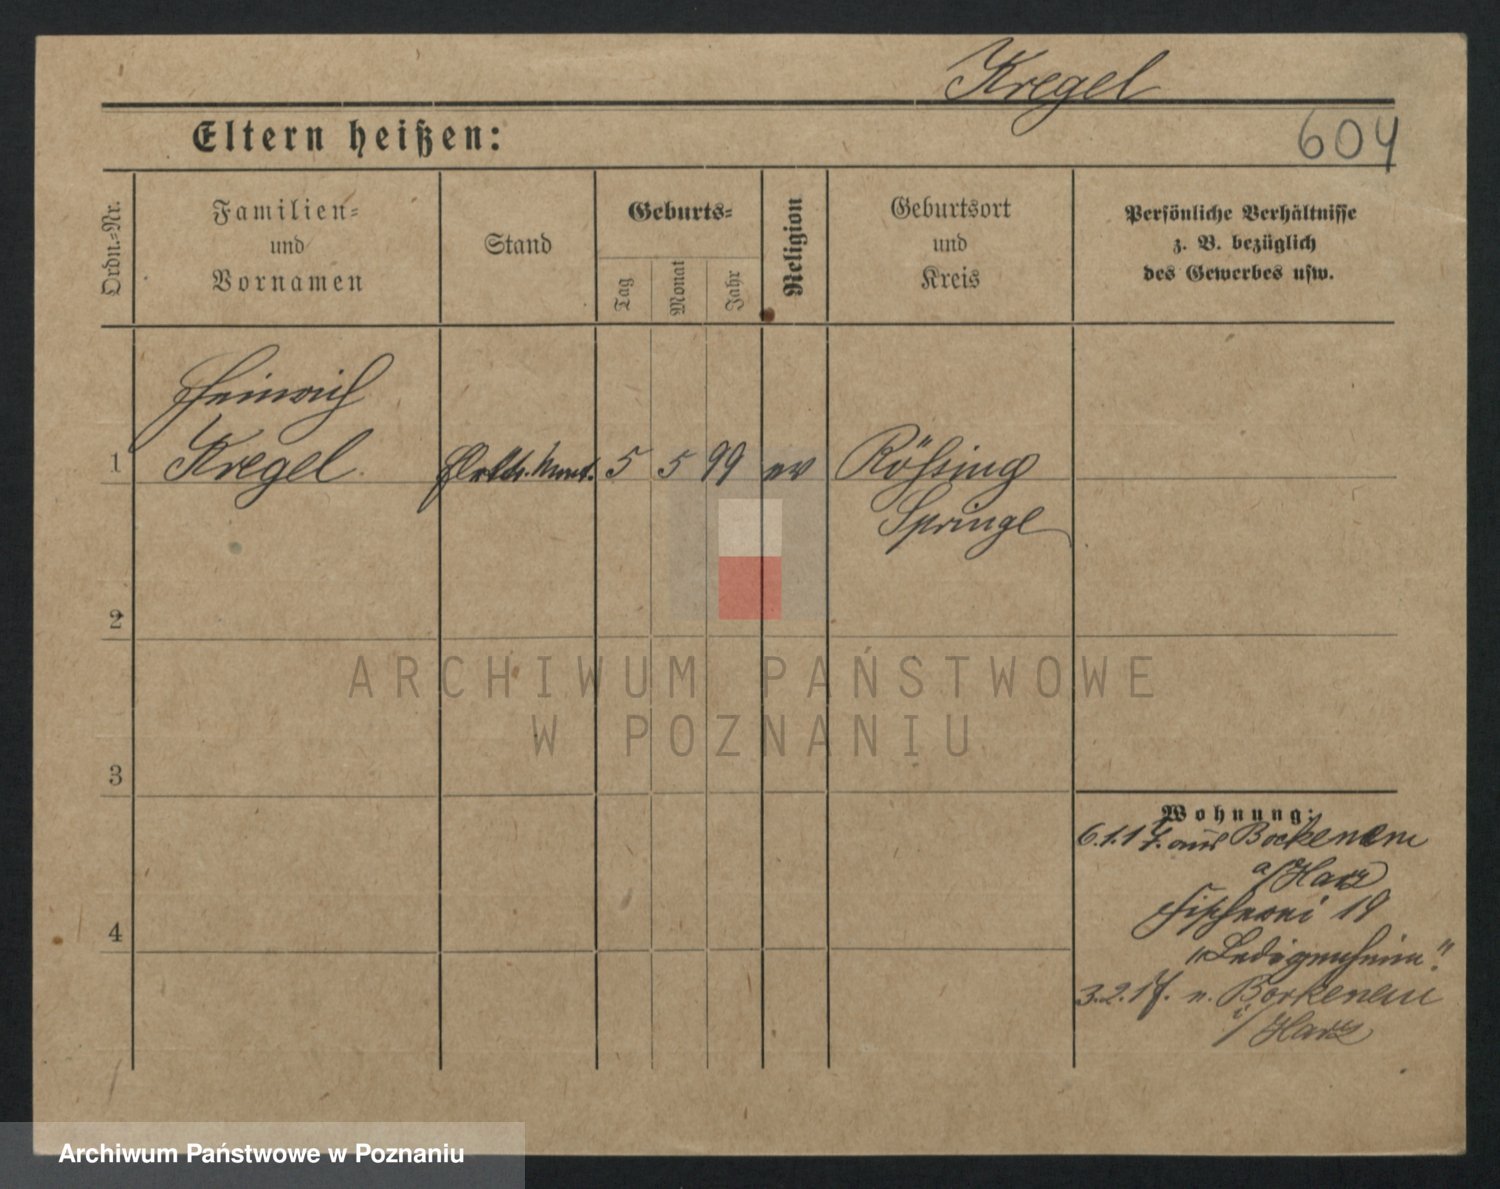 Kregel
604
Eltern heißen:
Ordn.-Nr.
Familien-
und
Vornamen
Stand
Geburts-
Tag
Monat
Jahr
Religion
Geburtsort
und
Kreis
Persönliche Verhältnisse
z. B. bezüglich
des Gewerbes usw.
Heinrich
1 Kregel 5 5 99 ev Rössing
Springe
2
3
4
Wohnung:
6.1.17. aus Bockenem
a/Harz
Fischerei 19
"Ledigenheim".
3.2.17. n. Bockenem
i/Harz
ARCHIWUM PAŃSTWOWE
W POZNANIU
Archiwum Państwowe w Poznaniu